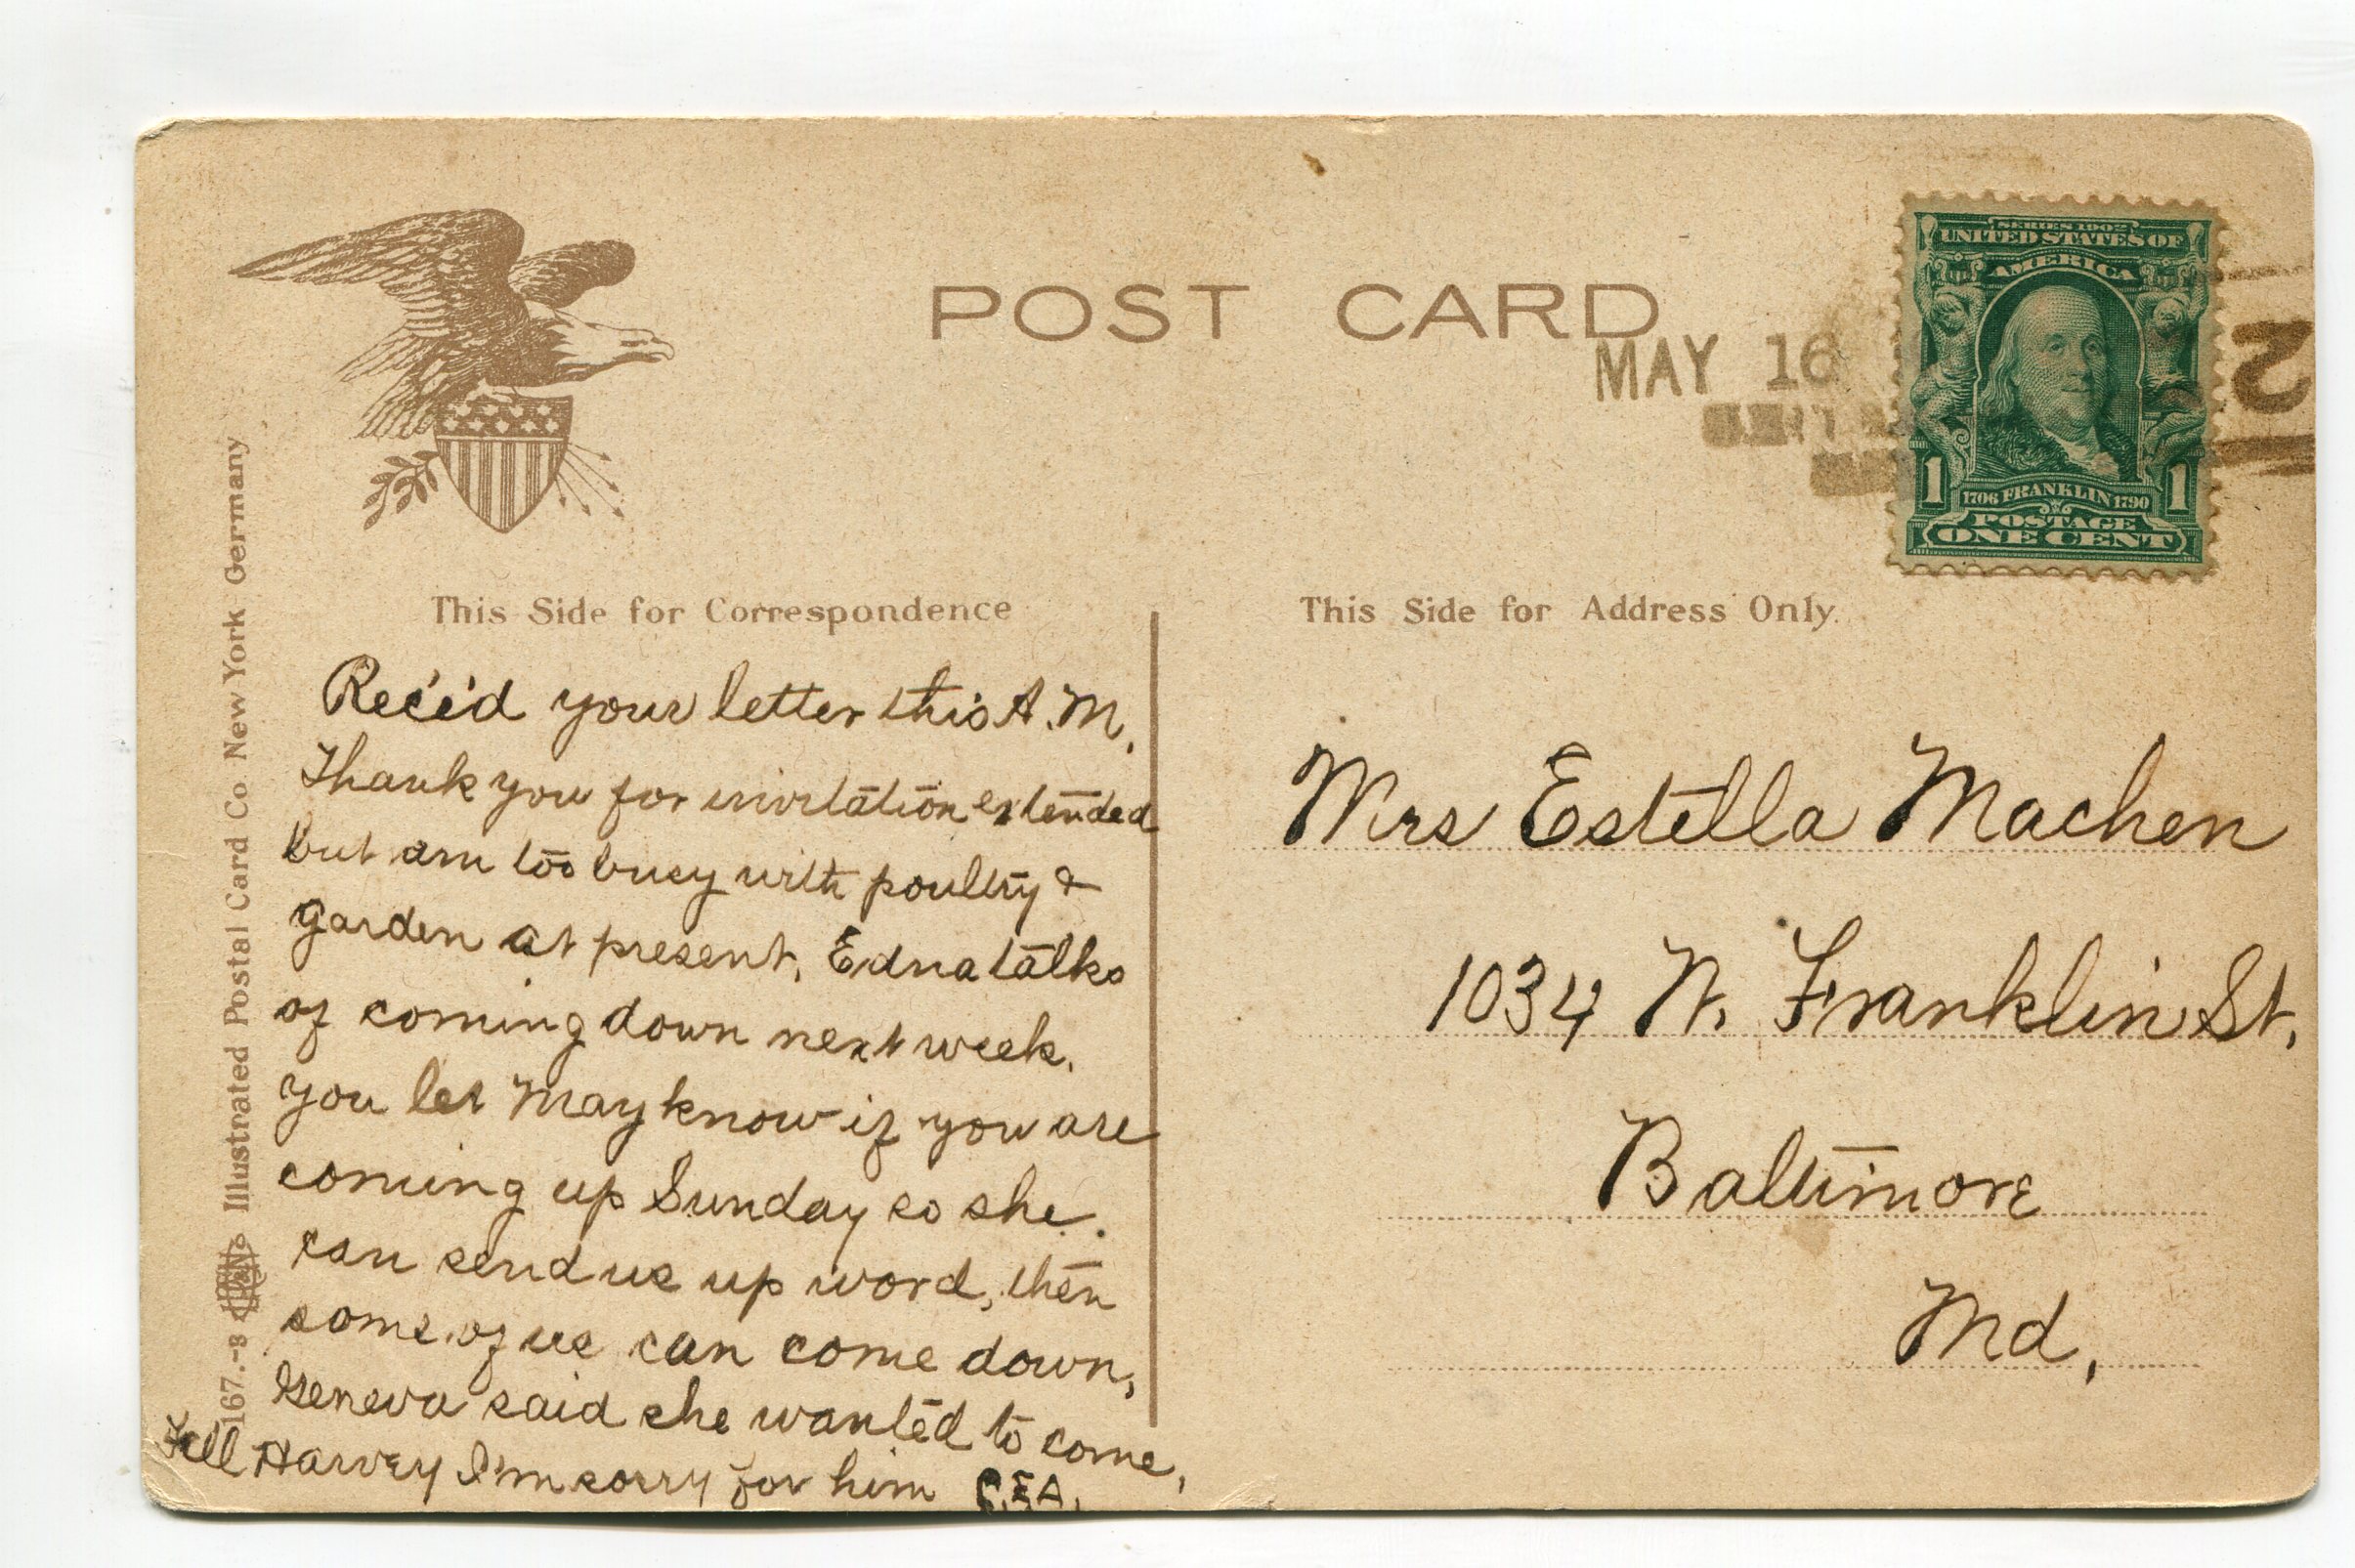 POST CARD
MAY 16
2
SERIES 1902
UNITED STATES OF
AMERICA
1 1
1706 FRANKLIN 1790
POSTAGE
ONE CENT
This Side for Correspondence
This Side for Address Only.
Rec'e'd your letter this A.M.
Thank you for invitation extended
but am too busy with poultry &
garden at present. Edna talks
of coming down next week.
You let May know if you are
coming up Sunday so she
can send us up word, then
some of us can come down,
Geneva said she wanted to come,
Tell Harvey I'm sorry for him C.E.A.
Mrs Estella Machen
1034 N. Franklin St.
Baltimore
Md,
167.-8 Illustrated Postal Card Co New York Germany